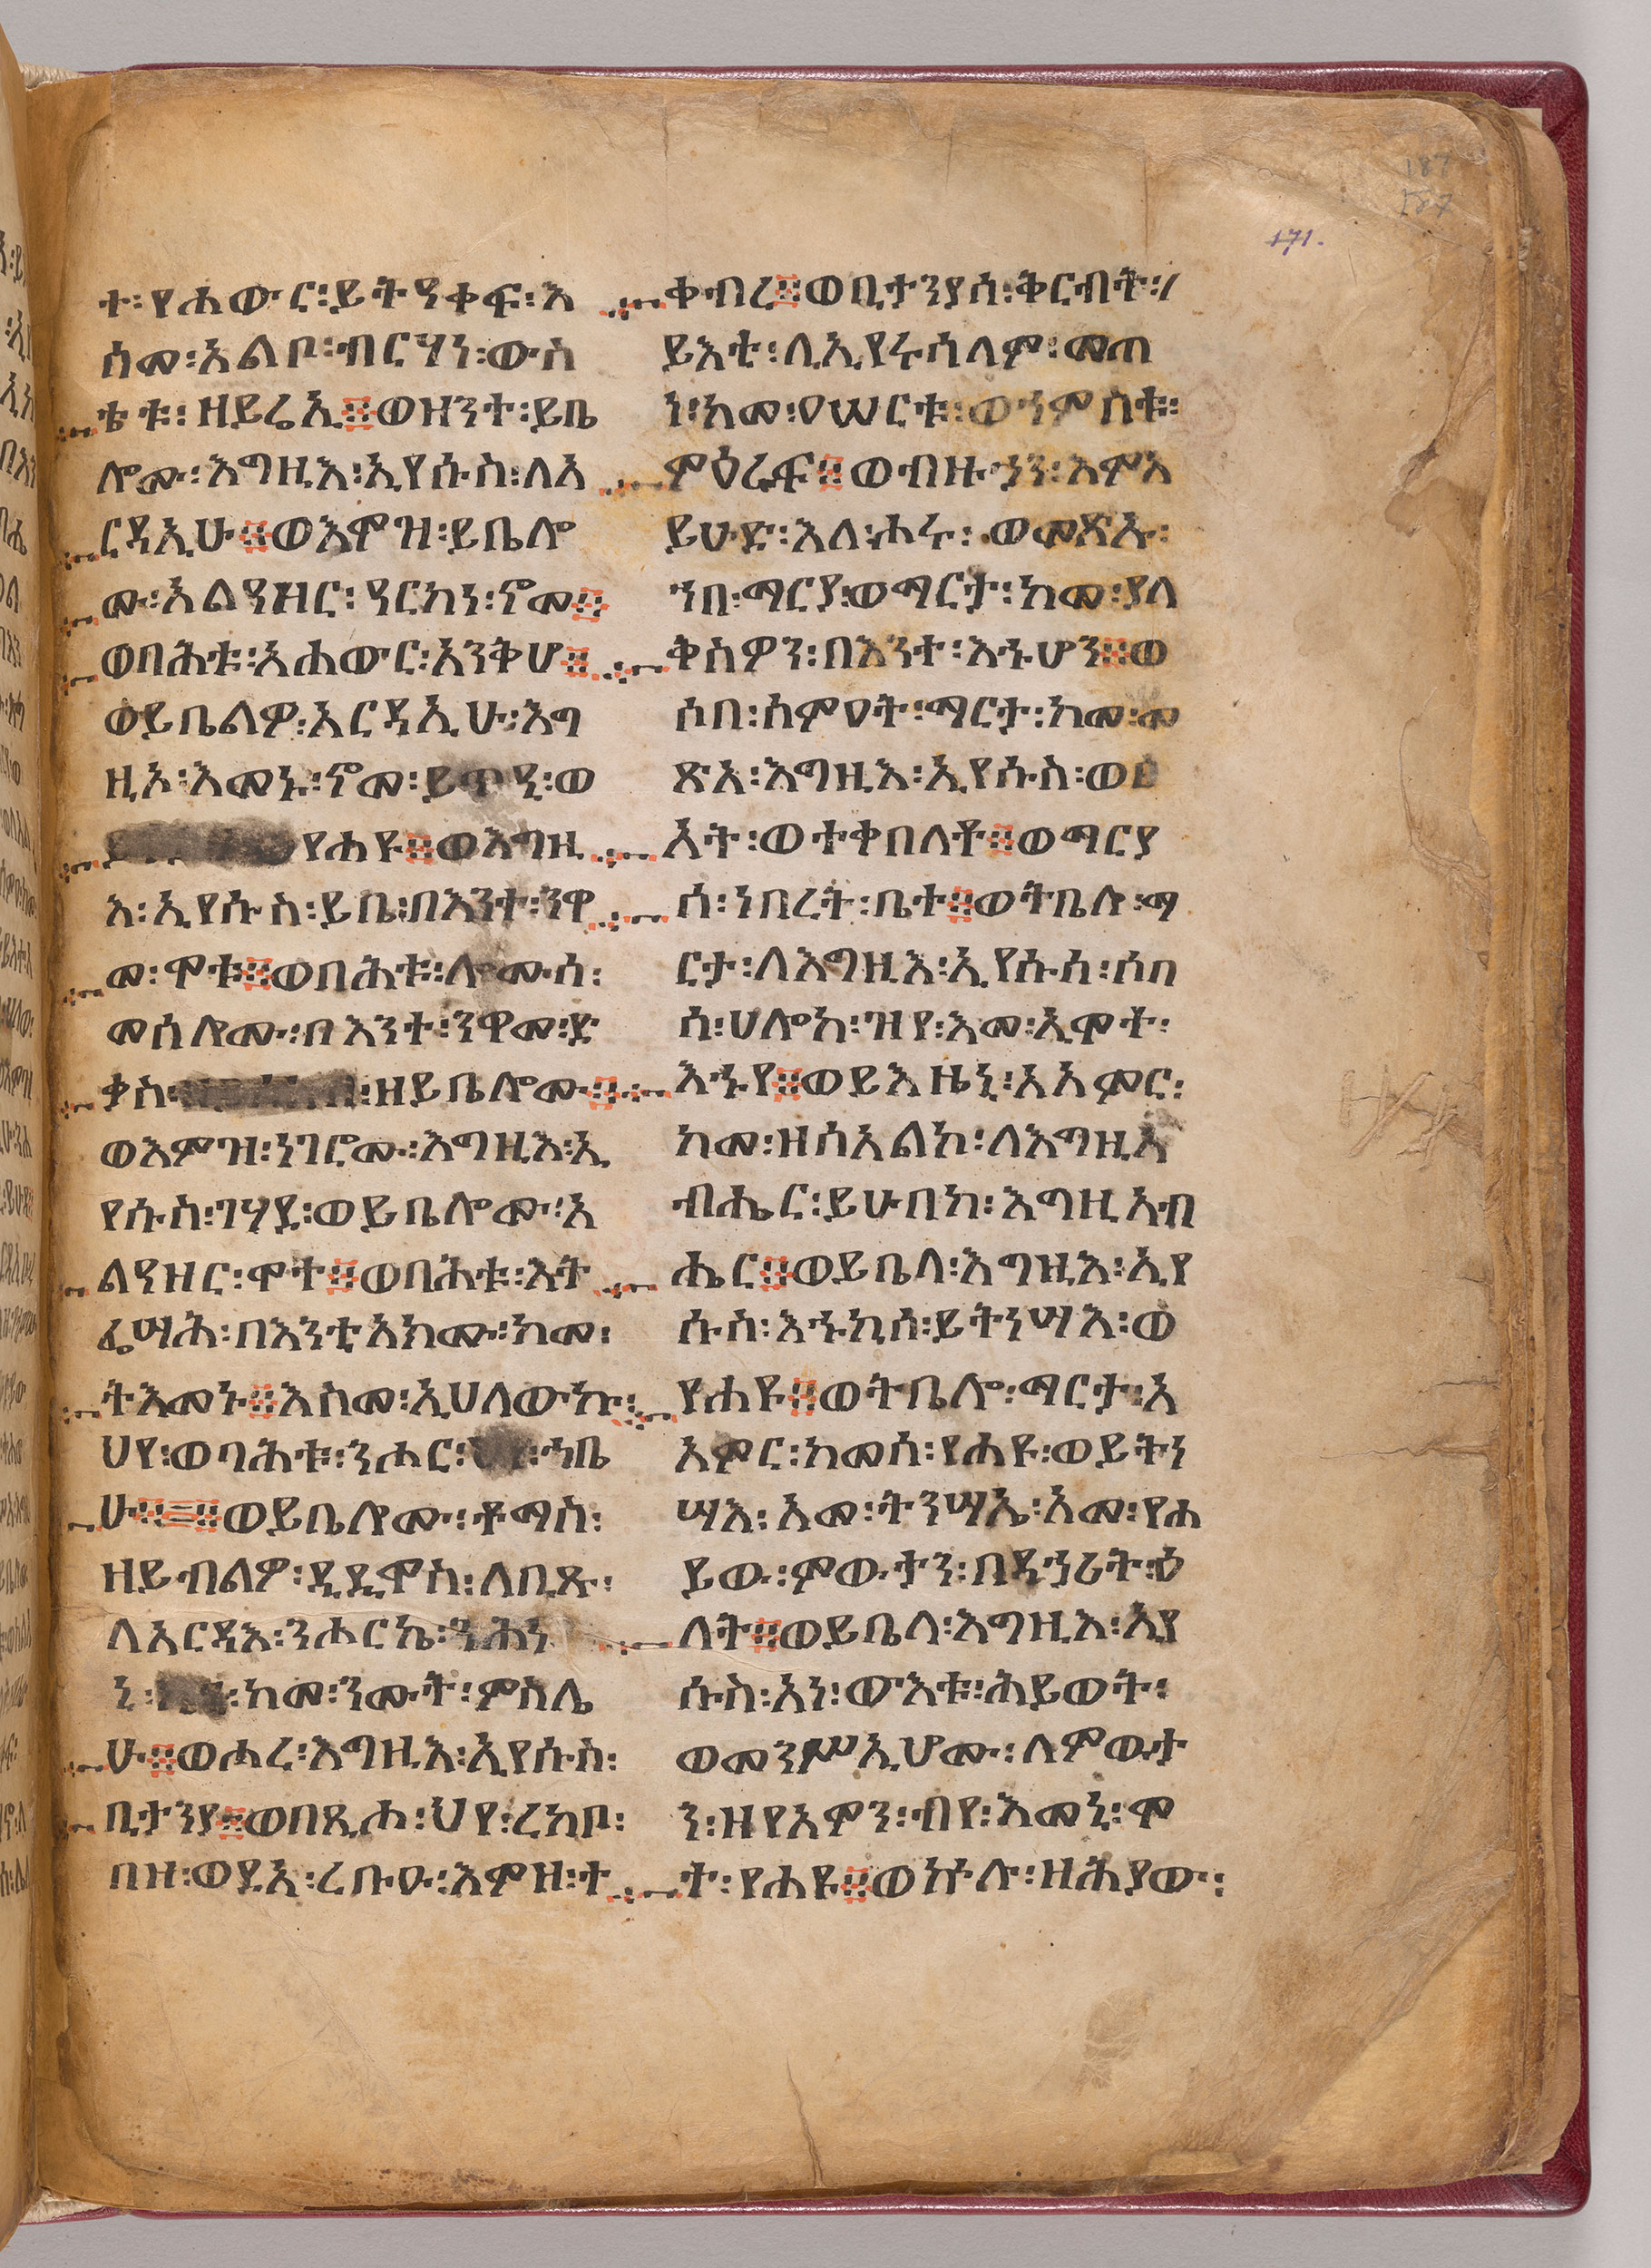 187
187
171.
ተ፡የሐውር፡ይትዓቀፍ፡እ
ሰመ፡አልቦ፡ብርሃነ፡ውስ
ቴቱ፡ዘይሬኢ፨ወዝንተ፡ይቤ
ሎሙ፡እግዚእ፡ኢየሱስ፡ለአ
ርዳኢሁ፨ወእምዝ፡ይቤሎ
ሙ፡አልዓዘር፡ዓርክነ፡ኖመ፨
ወባሕቱ፡አሐውር፡አንቅሆ፨
ወይቤልዎ፡አርዳኢሁ፡እግ
ዚኦ፡እመኑ፡ኖመ፡ይጥዒ፡ወ
የሐዩ፨ወእግዚ
እ፡ኢየሱስ፡ይቤ፡በእንተ፡ንዋ
መ፡ሞቱ፨ወበሕቱ፡ሎሙሰ፡
መሰሎሙ፡በእንተ፡ንዋመ፡ድ
ቃስ፡፡ዘይቤሎሙ፨
ወእምዝ፡ነገሮሙ፡እግዚእ፡ኢ
የሱስ፡ገሃደ፡ወይቤሎሙ፡አ
ልዓዘር፡ሞተ፨ወበሕቱ፡እት
ፌሣሕ፡በእንቲአክሙ፡ከመ፡
ትእመኑ፨እስመ፡ኢሀለውኩ፡
ህየ፡ወባሕቱ፡ንሑር፡፡ኀቤ
ሁ፨፨ወይቤሎሙ፡ቶማስ፡
ዘይብልዎ፡ዲዲሞስ፡ለቢጹ፡
ለአርዳእ፡ንሑርኬ፡ንሕነ
ኒ፡፡ከመ፡ንሙት፡ምስሌ
ሁ፨ወሖረ፡እግዚእ፡ኢየሱስ፡
ቢታንያ፨ወበጺሖ፡ህየ፡ረከቦ፡
በዝ፡ወደአ፡ረቡዑ፡እምዘ፡ተ
ቀብረ፨ወቢታንያሰ፡ቅርብት፡፡
ይእቲ፡ለኢየሩሳለም፡መጠ
ነ፡ከመ፡ዐሠርቱ፡ወኀምስቱ፡
ምዕራፍ፨ወብዙኃን፡እምአ
ይሁድ፡እለ፡ሖሩ፡ወመጽኡ፡
ኀበ፡ማርያ፡ወማርታ፡ከመ፡ያለ
ቅስዎን፡በእንተ፡እኁሆን፨ወ
ሶበ፡ሰምዐት፡ማርታ፡ከመ፡መ
ጽአ፡እግዚእ፡ኢየሱስ፡ወፅ
አት፡ወተቀበለቶ፨ወማርያ
ሰ፡ነበረት፡ቤተ፨ወትቤሎ፡ማ
ርታ፡ለእግዚእ፡ኢየሱሰ፡ሶበ
ሰ፡ሀሎከ፡ዝየ፡እመ፡ኢሞተ፡
እኁየ፨ወይእዜኒ፡አአምር፡
ከመ፡ዘሰአልኮ፡ለእግዚአ
ብሔር፡ይሁበከ፡እግዚአብ
ሔር፨ወይቤላ፡እግዚእ፡ኢየ
ሱስ፡እኁኪሰ፡ይትነሣእ፡ወ
የሐዩ፨ወትቤሎ፡ማርታ፡አ
አምር፡ከመሰ፡የሐዩ፡ወይትነ
ሣእ፡አመ፡ትንሣኤ፡አመ፡የሐ
ይው፡ምውታን፡በደኃሪት፡ዕ
ለት፨ወይቤላ፡እግዚእ፡ኢየ
ሱስ፡አነ፡ውእቱ፡ሕይወት፡
ወመንሥኢሆሙ፡ለምውታ
ን፡ዘየአምን፡ብየ፡እመኒ፡ሞ
ተ፡የሐዩ፨ወኵሉ፡ዘሕያው፡